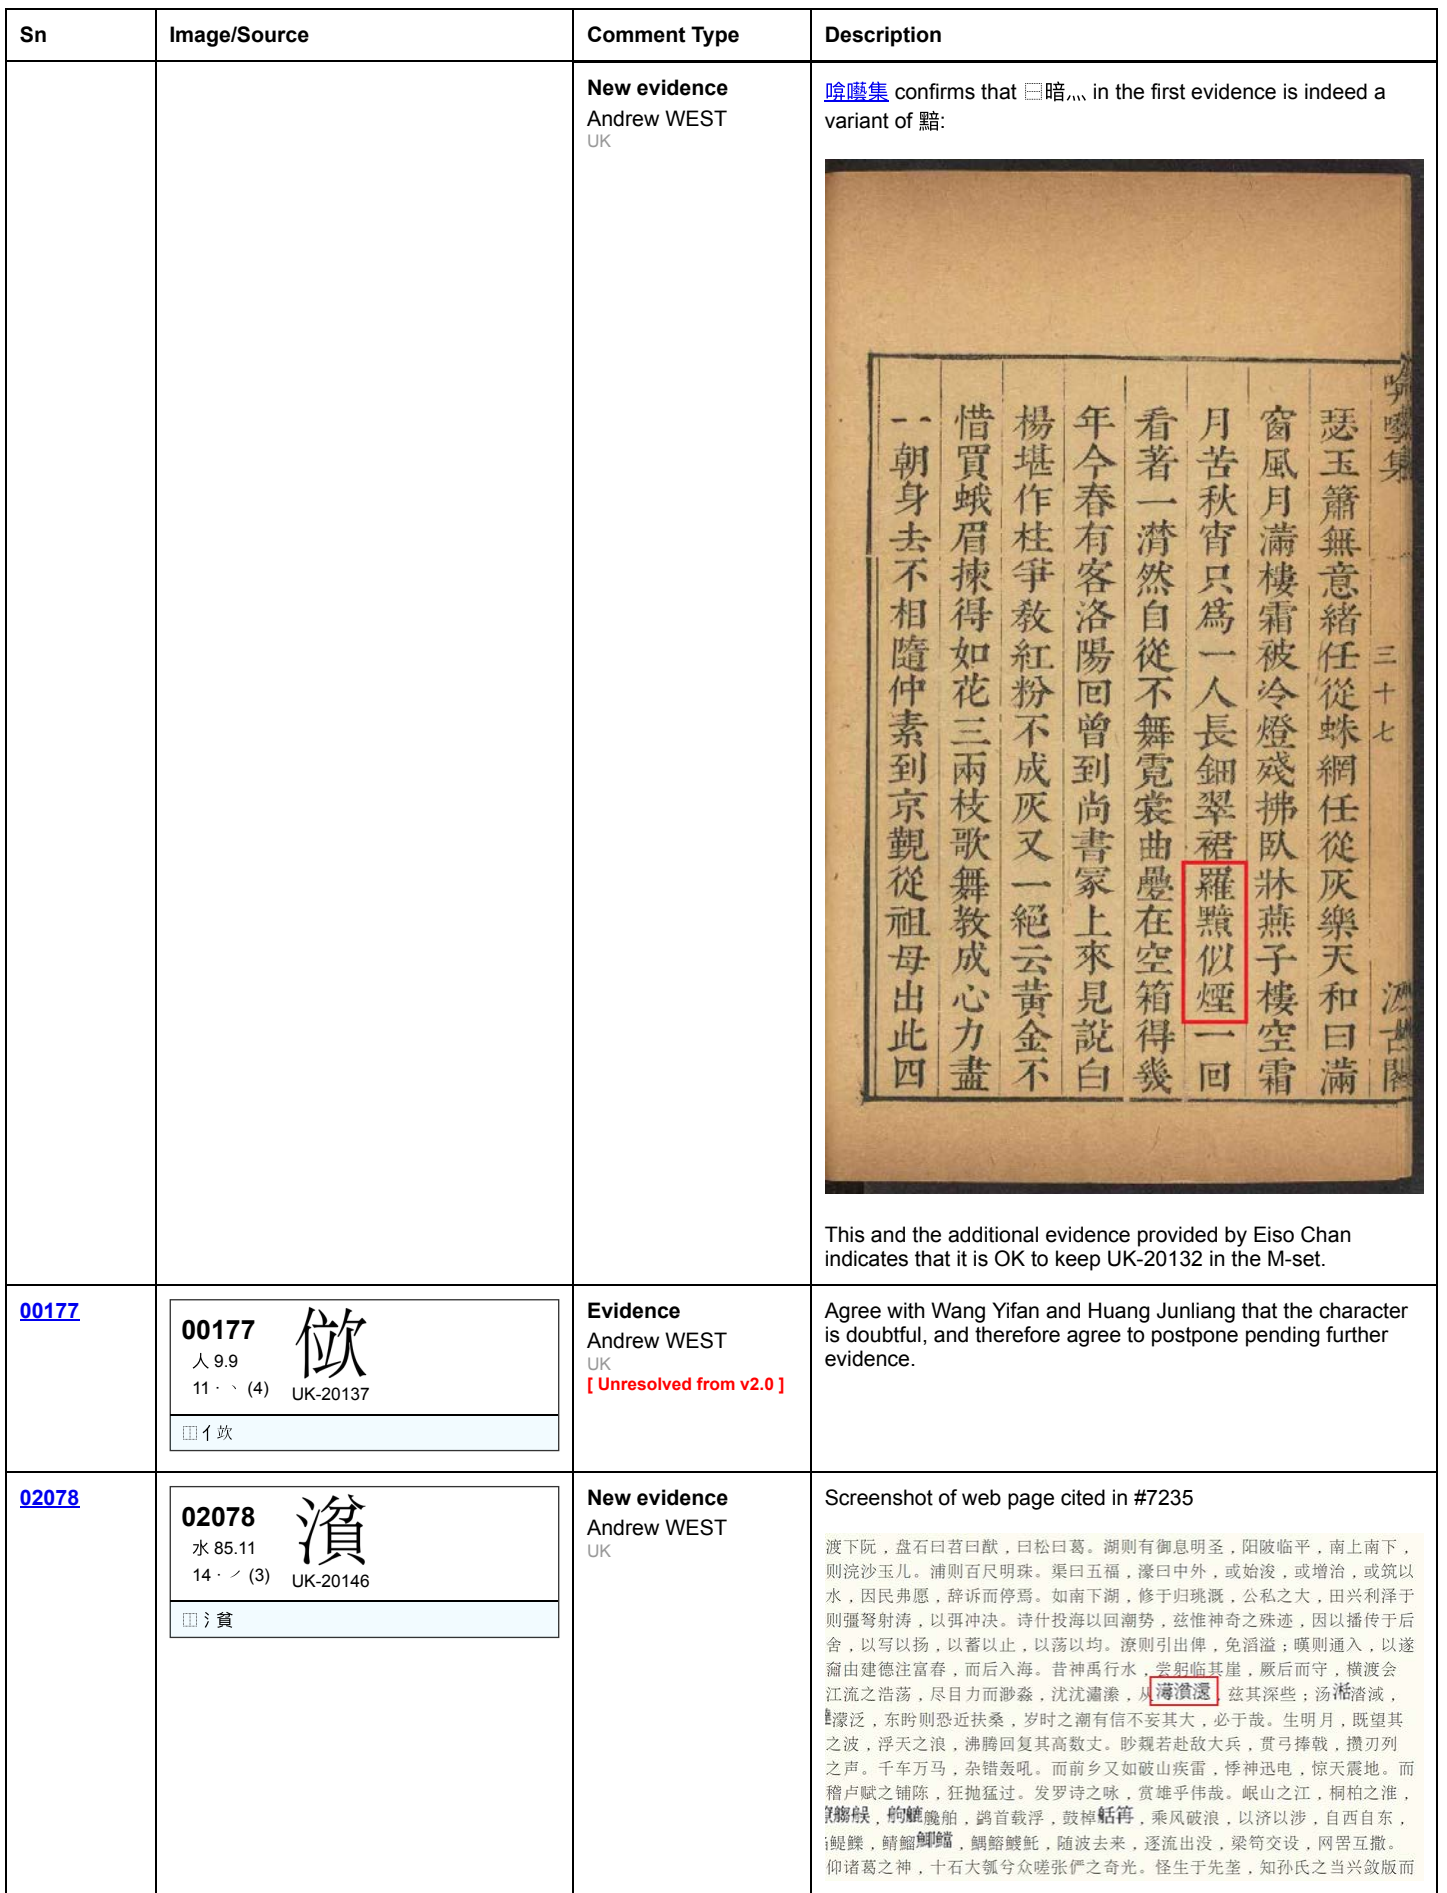 Sn Image/Source Comment Type Description
New evidence
Andrew WEST
UK
唵囈集 confirms that ⿱暗灬 in the first evidence is indeed a
variant of 黯:
三十七
瑟玉簫無意緒任從蛛網任從灰樂天和曰滿
窗風月滿樓霜被冷燈殘拂臥牀燕子樓空霜
月苦秋宵只爲一人長鈿翠裙羅黯似煙一回
看著一潸然自從不舞霓裳曲疊在空箱得幾
年今春有客洛陽回曾到尚書冢上來見說白
楊堪作柱爭教紅粉不成灰又一絕云黃金不
惜買蛾眉揀得如花三兩枝歌舞教成心力盡
一朝身去不相隨仲素到京覲從祖母出此四
This and the additional evidence provided by Eiso Chan
indicates that it is OK to keep UK-20132 in the M-set.
00177
00177
人 9.9
11 · ㇔ (4)
UK-20137
⿰亻欨
Evidence
Andrew WEST
UK
[ Unresolved from v2.0 ]
Agree with Wang Yifan and Huang Junliang that the character
is doubtful, and therefore agree to postpone pending further
evidence.
02078
02078
水 85.11
14 · ㇒ (3)
UK-20146
⿰氵貧
New evidence
Andrew WEST
UK
Screenshot of web page cited in #7235
渡下阮，盘石曰苕曰猷，曰松曰葛。湖则有御息明圣，阳陂临平，南上南下，
则浣沙玉儿。浦则百尺明珠。渠曰五福，濠曰中外，或始浚，或增治，或筑以
水，因民弗愿，辞诉而停焉。如南下湖，修于归珧溉，公私之大，田兴利泽于
则彊弩射涛，以弭冲决。诗什投海以回潮势，兹惟神奇之殊迹，因以播传于后
舍，以写以扬，以蓄以止，以荡以均。潦则引出俾，免滔溢；暵则通入，以遂
奫由建德注富春，而后入海。昔神禹行水，尝躬临其崖，厥后而守，横渡会
江流之浩荡，尽目力而渺淼，沋沋潚潫，从 ，兹其深些；汤 渚淢，
濛泛，东眄则恐近扶桑，岁时之潮有信不妄其大，必于哉。生明月，既望其
之波，浮天之浪，沸腾回复其高数丈。眇觌若赴敌大兵，贯弓捧戟，攒刃列
之声。千车万马，杂错轰吼。而前乡又如破山疾雷，悸神迅电，惊天震地。而
稽卢赋之铺陈，狂抛猛过。发罗诗之咏，赏雄乎伟哉。岷山之江，桐柏之淮，
艬舶，鹢首载浮，鼓棹 ，乘风破浪，以济以涉，自西自东，
鲲鱳，鲭鰡 ，鰅鰫鯼魠，随波去来，逐流出没，梁笱交设，网罟互撒。
仰诸葛之神，十石大瓠兮众嗟张俨之奇光。怪生于先垄，知孙氏之当兴敛版而